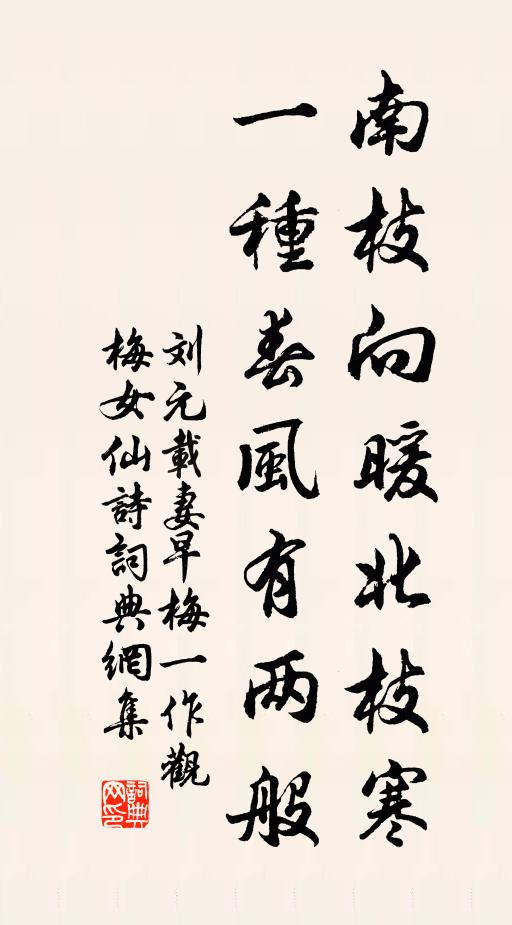 南枝向暖北枝寒
一種春風有两般
刘元載妻早梅一作觀
梅女仙詩詞典網集
詞典网印